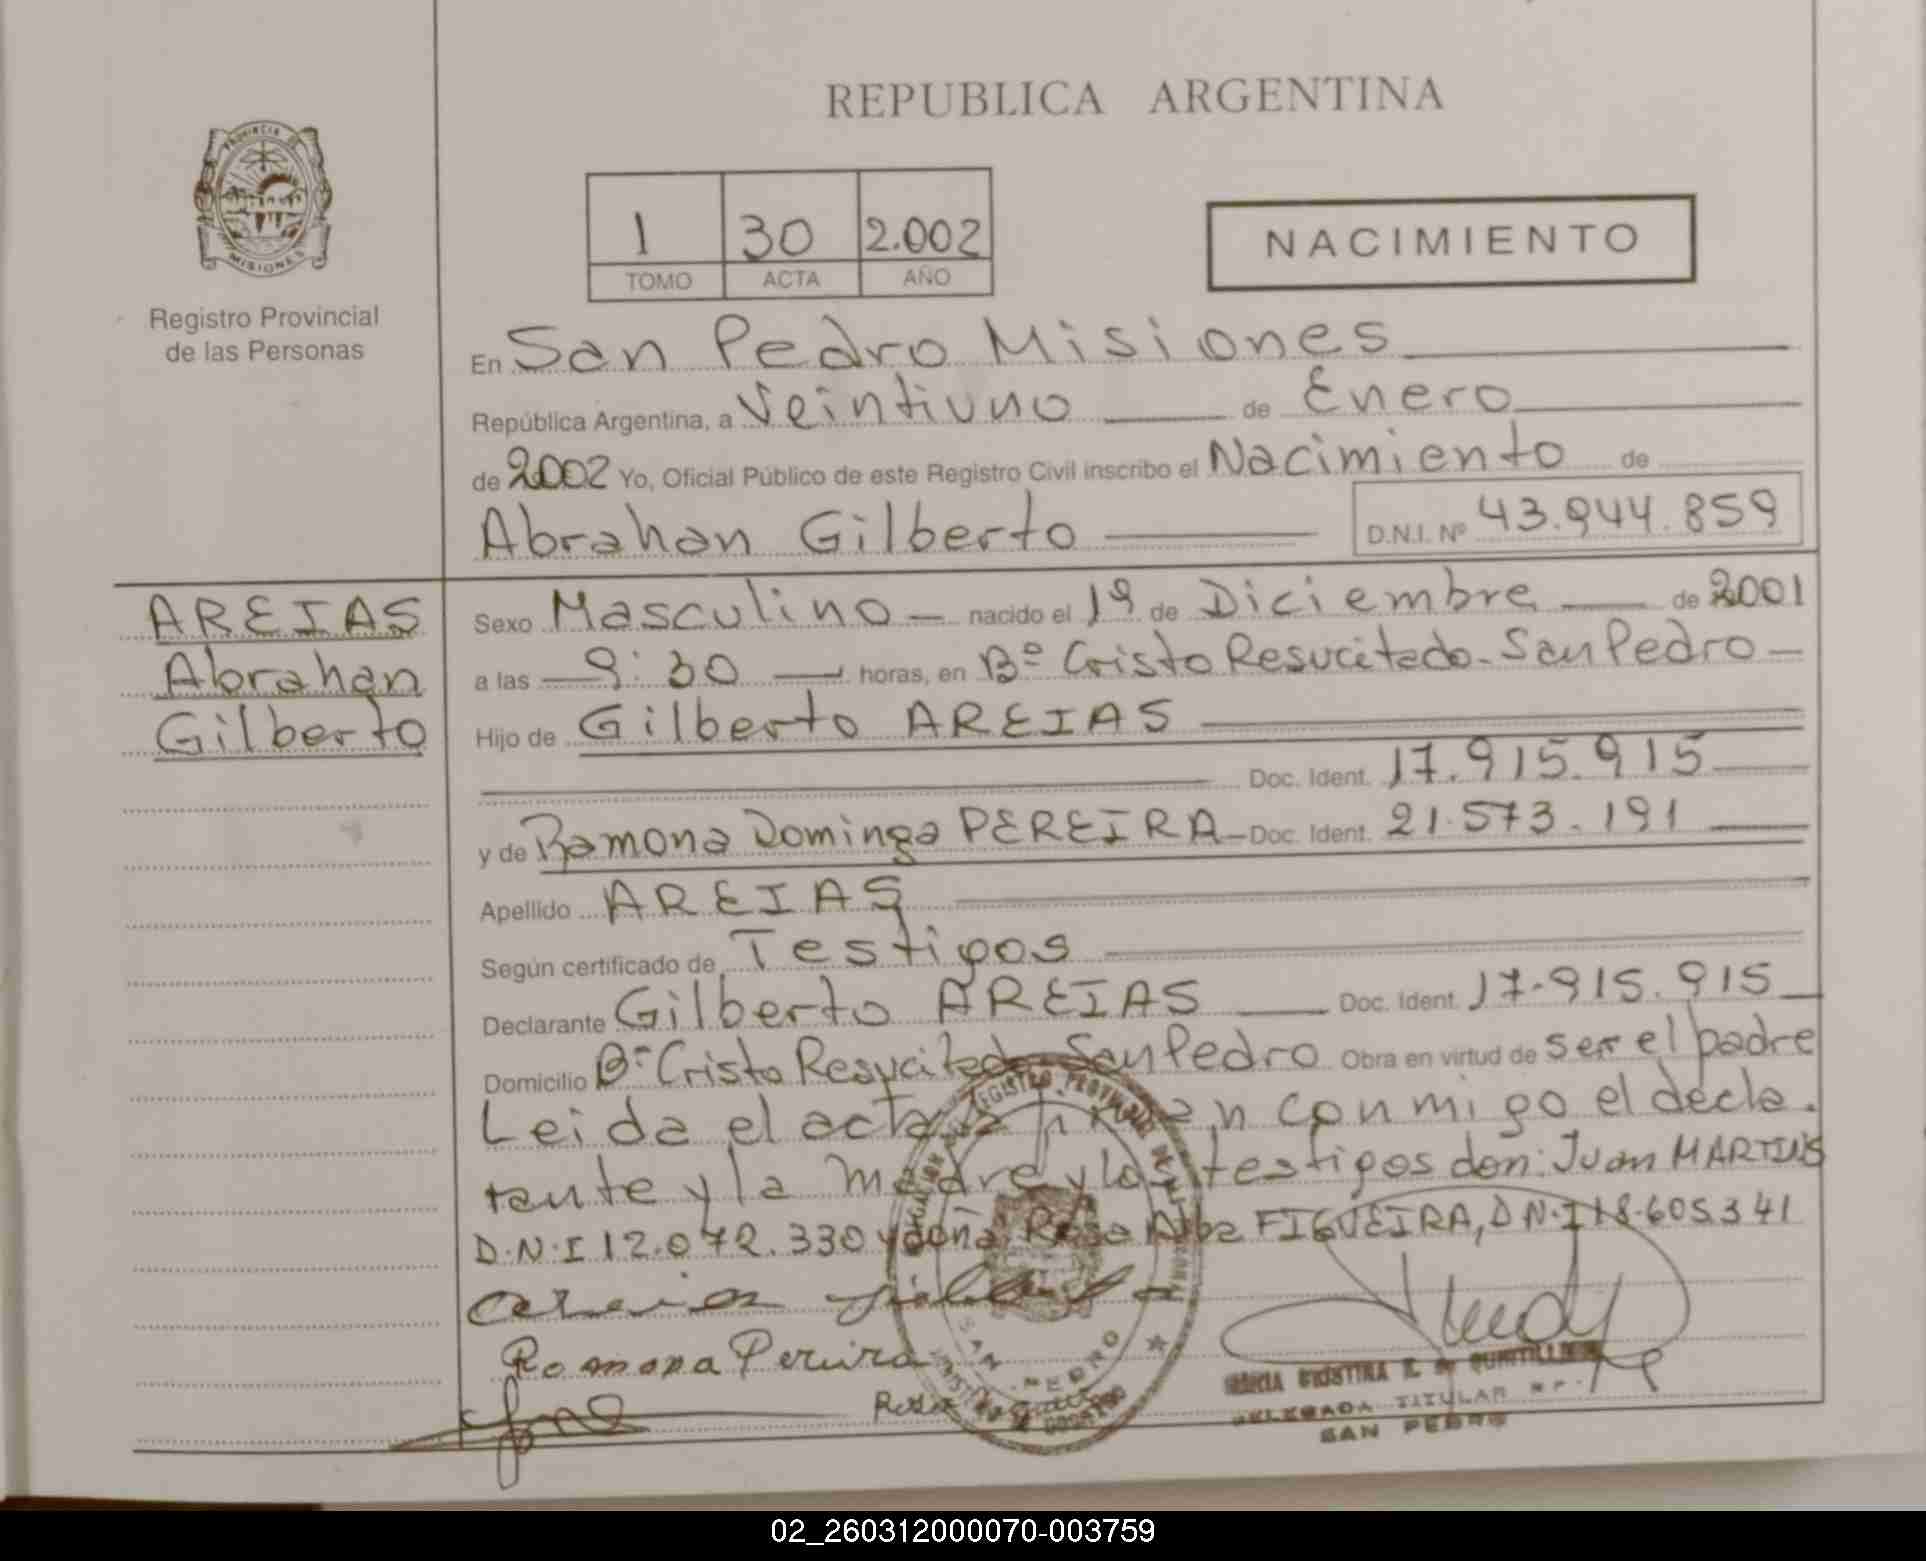 REPUBLICA ARGENTINA
PROVINCIA DE
MISIONES
Registro Provincial
de las Personas
1 30 2.002
TOMO ACTA AÑO
NACIMIENTO
En San Pedro Misiones
República Argentina, a Veintiuno de Enero
de 2002 Yo, Oficial Público de este Registro Civil inscribo el Nacimiento de
Abrahan Gilberto D.N.I. Nº 43.944.859
AREIAS
Abrahan
Gilberto
Sexo Masculino nacido el 19 de Diciembre de 2001
a las 9:30 horas, en Bº Cristo Resucitado - San Pedro
Hijo de Gilberto AREIAS
Doc. Ident. 17.915.915
y de Ramona Dominga PEREIRA Doc. Ident. 21.573.191
Apellido AREIAS
Según certificado de Testigos
Declarante Gilberto AREIAS Doc. Ident. 17.915.915
Domicilio Bº Cristo Resucitado San Pedro Obra en virtud de ser el padre
Leida el acta conmigo el decla.
rante y la madre y los testigos don: Juan MARTINS
D.N.I 12.072.330 y doña Rosa Alba FIGUEIRA, D.N.I 18.605.341
Ramona Pereira
Rosa
DELEGADA TITULAR
SAN PEDRO
REGISTRO PROVINCIAL DE
SAN PEDRO
02_260312000070-003759